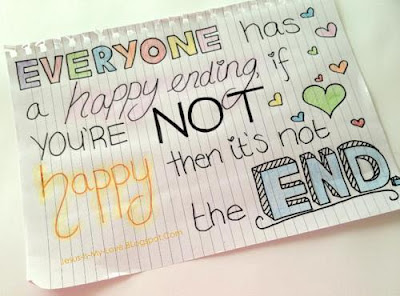 EVERYONE has
a happy ending, if
YOU'RE NOT
happy then it's not
the END.
Jesus-Is-My-Love.Blogspot.Com